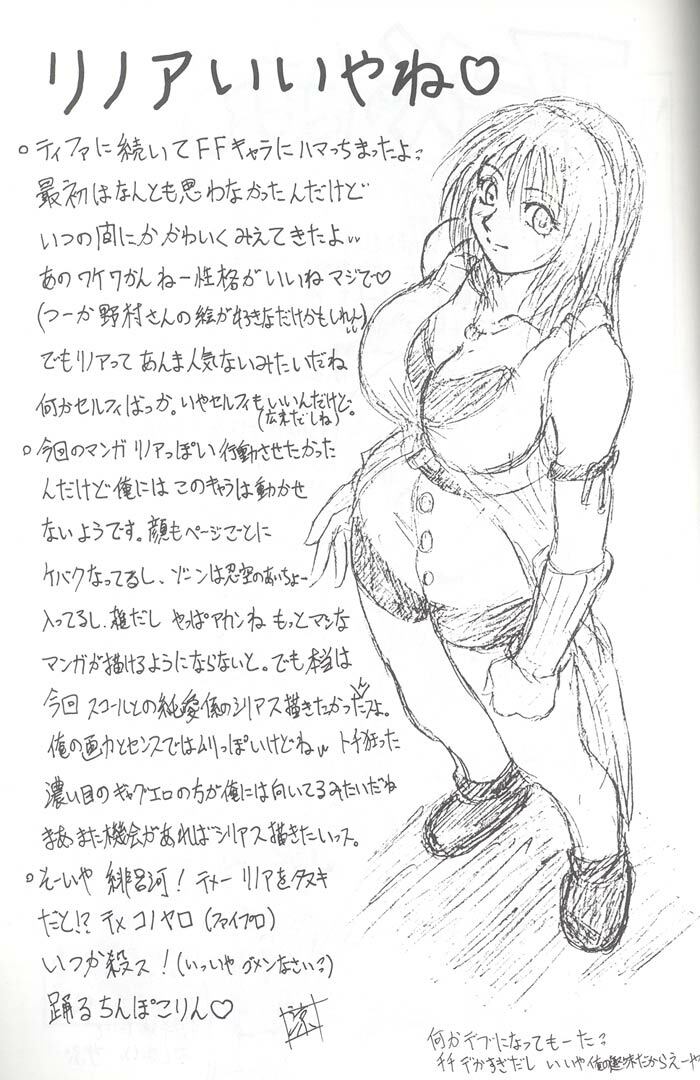 リノアいいやね♡
○ティファに続いてFFキャラにハマっちまったよ〜
最初はなんとも思わなかったんだけど
いつの間にかかわいくみえてきたよ
あのワケワかんねー性格がいいねマジで♡
(つーか野村さんの絵が好きなだけかもしれん)
でもリノアってあんま人気ないみたいだね
何かセルフィばっか。いやセルフィもいいんだけど。
(広末だしね)
○今回のマンガリノアっぽい行動させたかった
んだけど俺にはこのキャラは動かせ
ないようです。顔もページごとに
ケバくなってるし、ゾーンは忍空のあいちょー
入ってるし、雑だしやっぱアカンねもっとマシな
マンガが描けるようにならないと。でも本当は
今回スコールとの純愛係のシリアス描きたかったっスよ。
俺の画力とセンスではムリっぽいけどねトチ狂った
濃い目のギャグエロの方が俺には向いてるみたいだね
まあまた機会があればシリアス描きたいっス。
○えーいや緋呂河!テメーリノアをタヌキ
だと!?テメコノヤロ(ファイプロ)
いつか殺ス!(いっいやゴメンなさい〜)
踊るちんぽこりん♡
何かデブになってもーた〜
チチデカすぎだしいいや俺の趣味だからえーや